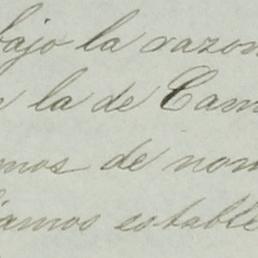 bajo la razon
la de Cam
mos de nom
iamos estable